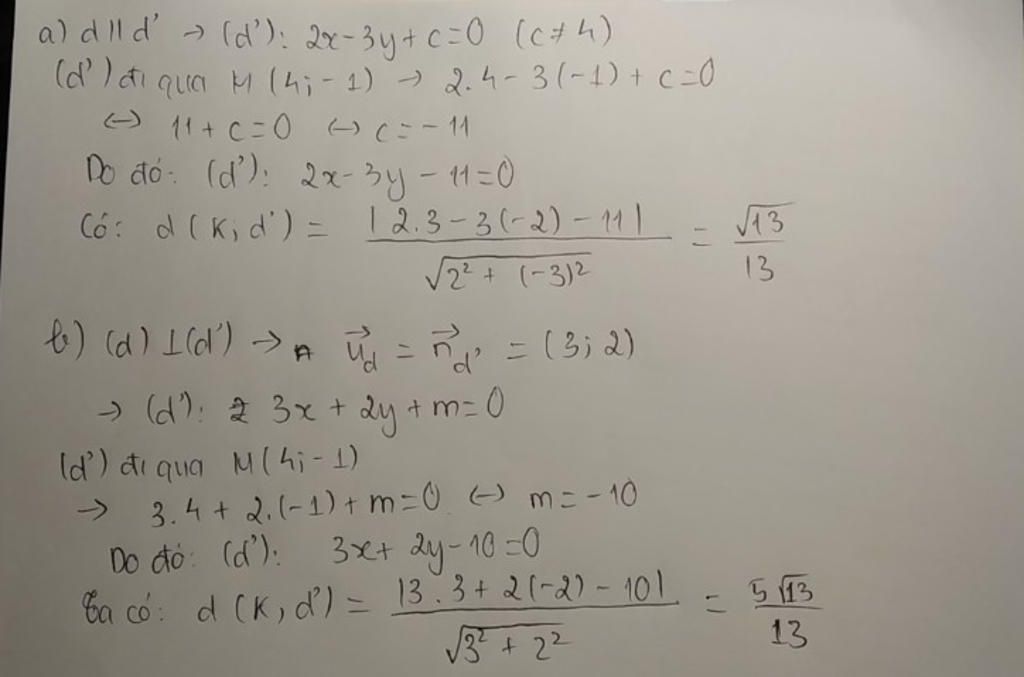 a) d // d' → (d'): 2x - 3y + c = 0 (c ≠ 4)
(d') đi qua M (4; -1) → 2.4 - 3(-1) + c = 0
↔ 11 + c = 0 ↔ c = -11
Do đó: (d'): 2x - 3y - 11 = 0
Có: d (K; d') = |2.3 - 3(-2) - 11| / √(2² + (-3)²) = √13 / 13
b) (d) ⊥ (d') → u⃗_d = n⃗_d' = (3; 2)
→ (d'): 3x + 2y + m = 0
(d') đi qua M (4; -1)
→ 3.4 + 2.(-1) + m = 0 ↔ m = -10
Do đó: (d'): 3x + 2y - 10 = 0
Ta có: d (K, d') = |3.3 + 2(-2) - 10| / √(3² + 2²) = 5√13 / 13